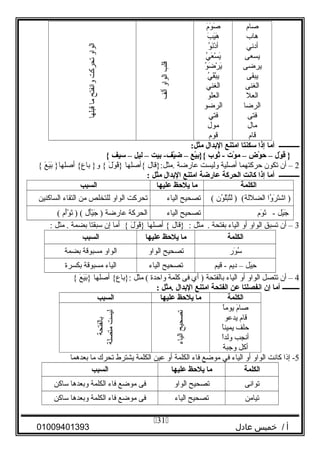 صام
هاب
أدني
يسعى
يرضى
يبقى
الغنى
العلا
الرضا
فتى
مال
قام
صوم
هَيِبَ
أَدْنَوَ
يَسْعَىُ
يَرْضَوُ
يَبْقَىُ
الغَنَي
العَلَو
الرضَو
فتَي
موَل
قوَم
قلب الواو ألف
الواو تحركت وانفتح ما قبلها
ــــــــ أما إذا سكنتا امتنع الإبدال مثل:
{ قَوْل – حوْض – موْت - ثوب }{بيْع – ضيْف- بيت – ليل – سيف }
2 – أن تكون حركتهما أصلية وليست عارضة .مثل:{قال }أصلها {قَوَلَ } و{ باع} أصلها{ بَيَعَ }
ــــــــ أما إذا كانت الحركة عارضة امتنع الإبدال مثل :
الكلمة ما يلاحظ عليها السبب
(اشترَوُا الضلالة) ( لَتُبْلَوُنَّ ) تصحيح الياء تحركت الواو للتخلص من التقاء الساكنين
جَيَل - تَوَم تصحيح الياء الحركة عارضة ( جَيْأَل ) ( تَوْأَم )
3 – أن تسبق الواو أو الياء بفتحة . مثل : {قال } أصلها {قَوَل } أما إن سبقتا بضمة . مثل :
الكلمة ما يلاحظ عليها السبب
سُوَر تصحيح الواو الواو مسبوقة بضمة
حيل – ديم - قيم تصحيح الياء الياء مسبوقة بكسرة
4 – أن تتصل الواو أو الياء بالفتحة ( أي فى كلمة واحدة ) مثل :{باع} أصلها {بَيَعَ }
ــــــــ أما إن انفصلتا عن الفتحة امتنع الإبدال .مثل :
الكلمة ما يلاحظ عليها السبب
صام يوماً
قام يدعو
حلف يميناً
أنجب ولداً
أكل وجبة
تصحيح الياء
ليست متصلة بالفتحة
5- إذا كانت الواو أو الياء في موضع فاء الكلمة أو عين الكلمة يشترط تحرك ما بعدهما
الكلمة ما يلاحظ عليها السبب
توانى تصحيح الواو فى موضع فاء الكلمة وبعدها ساكن
تيامن تصحيح الياء فى موضع فاء الكلمة وبعدها ساكن
31
أ / خميس عادل 01009401393